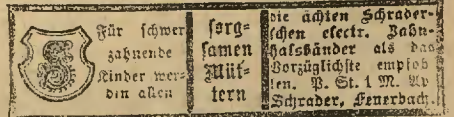 Für schwer
zahnende
Kinder wer-
den allen
sorg-
samen
Müt-
tern
die ächten Schrader-
schen electr. Zahn-
halsbänder als das
Vorzüglichste empfoh
len. P. St. 1 M. Ap
Schrader, Feuerbach.